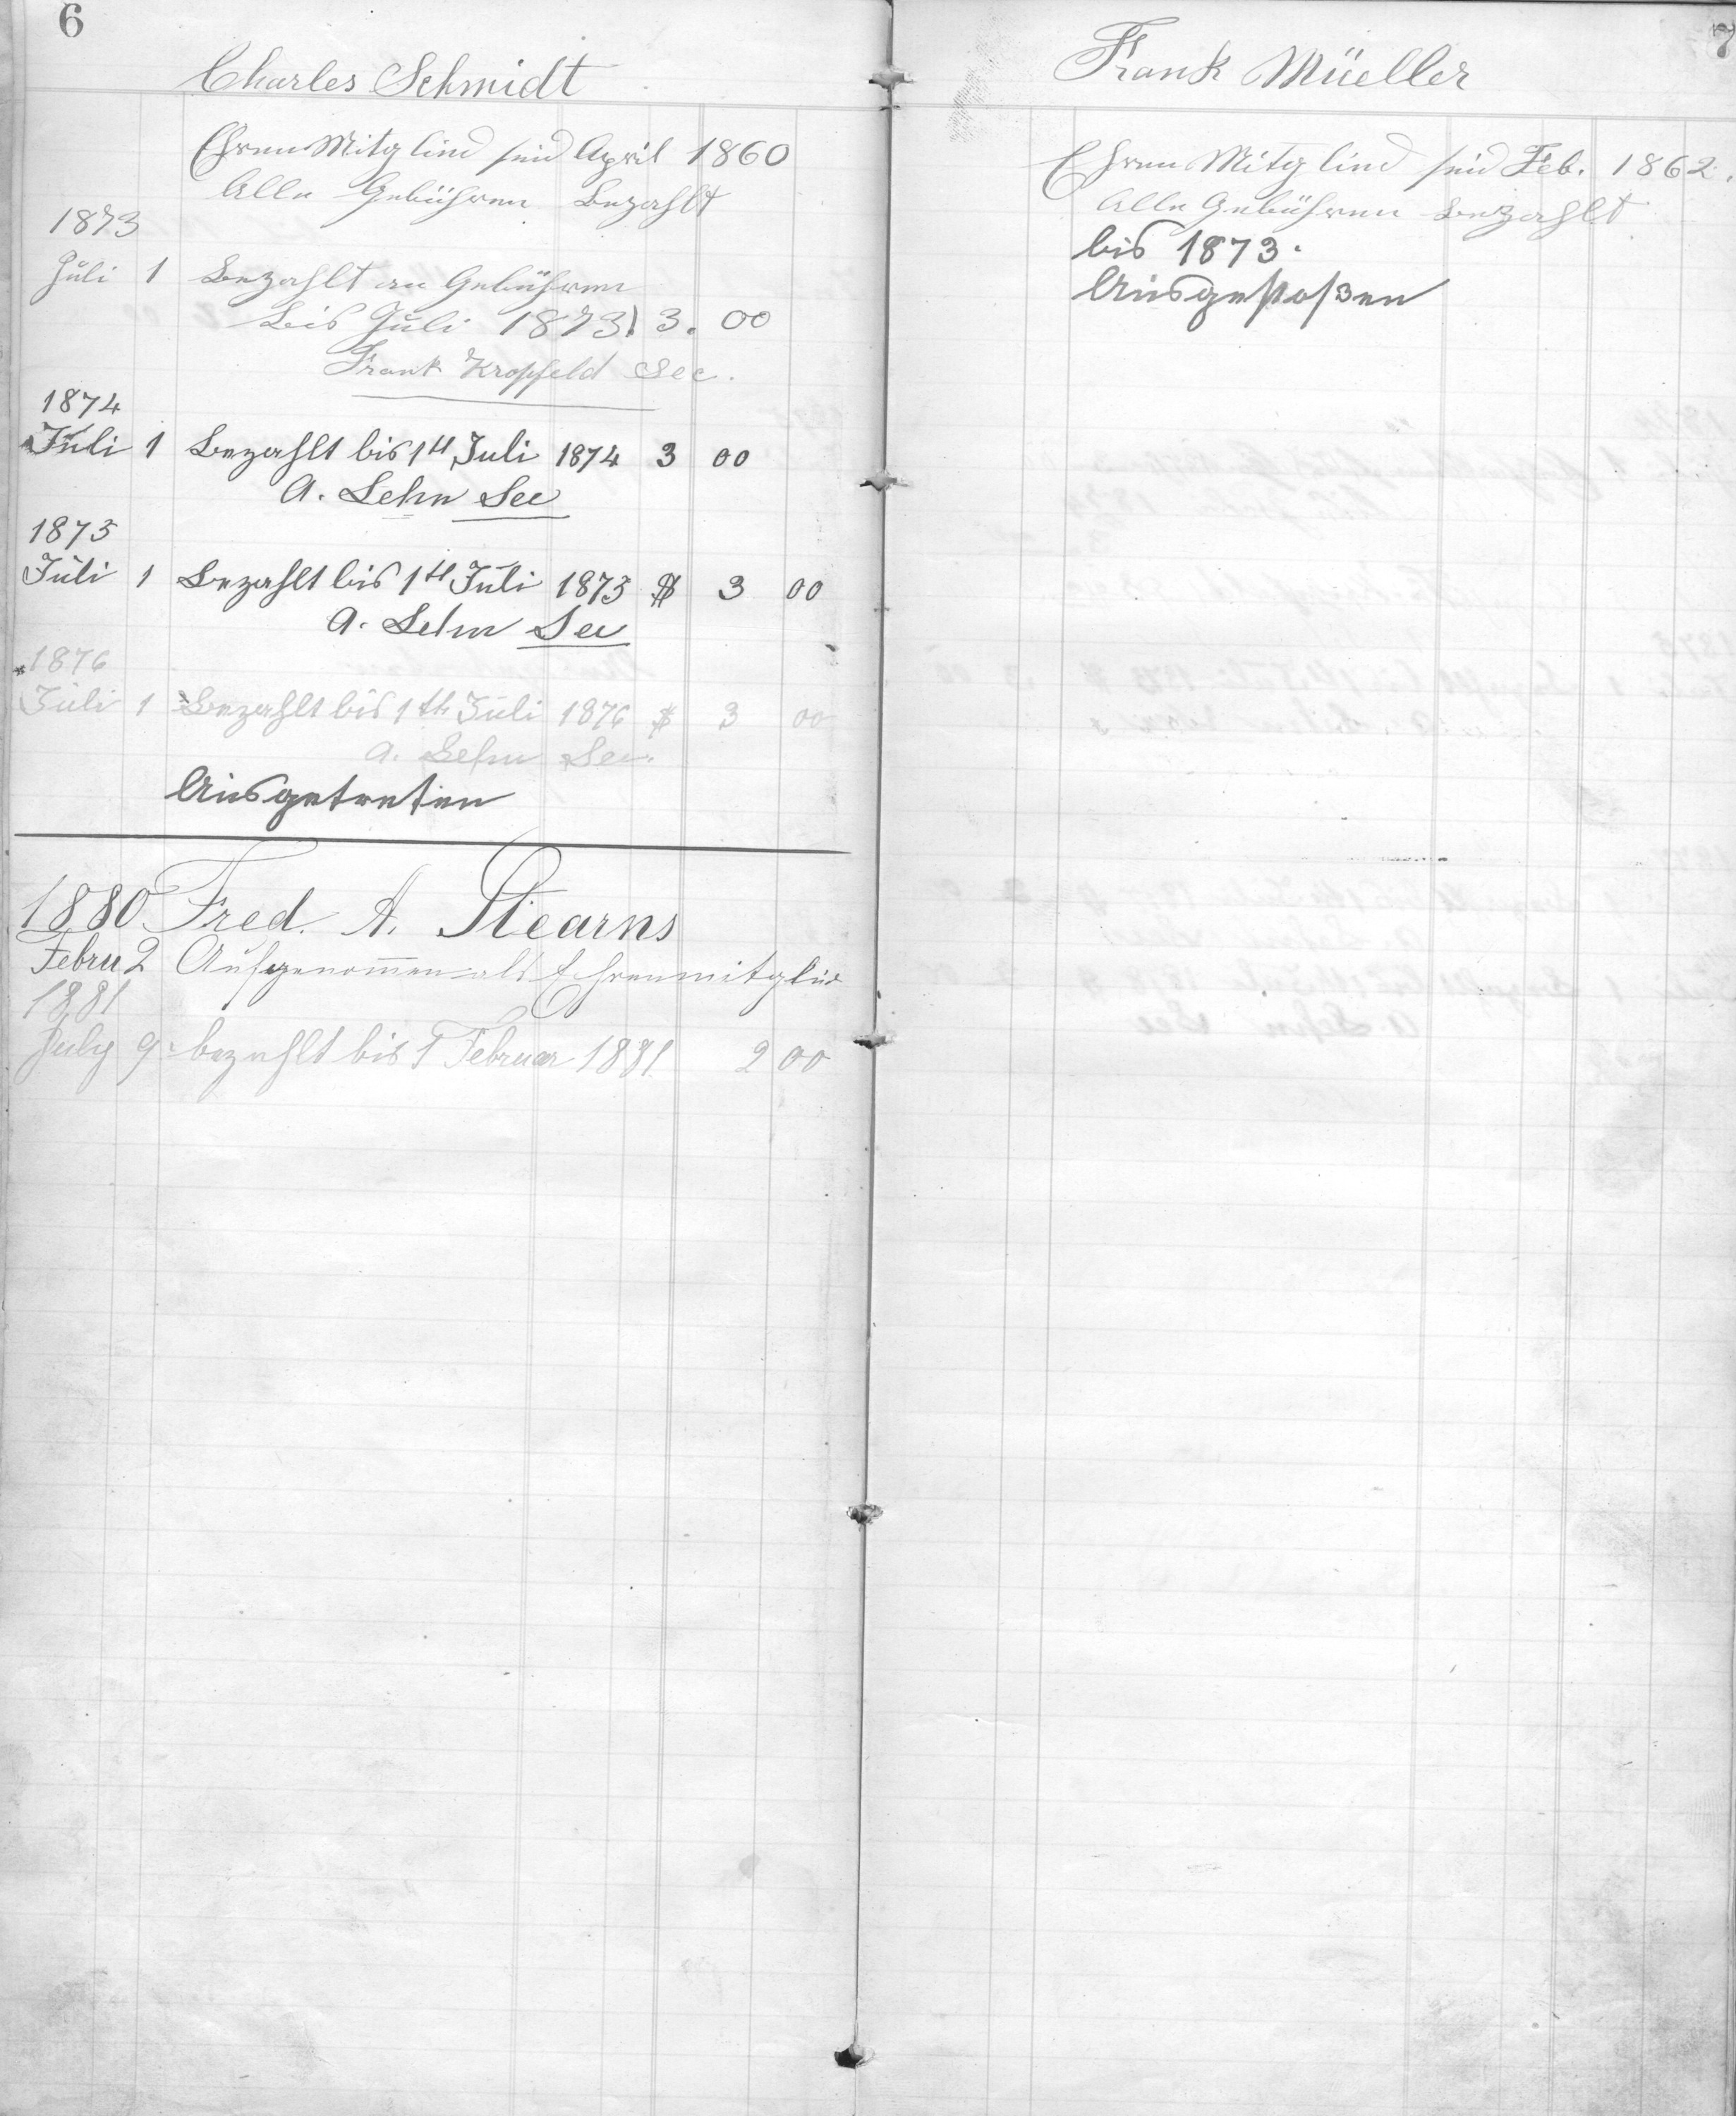 6
Charles Schmidt
Ehren Mitglied seid April 1860
Alle Gebühren Bezahlt
1873
Juli 1 Bezahlt an Gebühren
bis Juli 1873 3. 00
Frank Kropfeld Sec.
1874
Juli 1 Bezahlt bis 1st Juli 1874 3 00
A. Lehn Sec
1875
Juli 1 Bezahlt bis 1st Juli 1875 $ 3 00
A. Lehn Sec
1876
Juli 1 Bezahlt bis 1th Juli 1876 $ 3 00
A. Lehn Sec.
Ausgetreten
1880 Fred. A. Stearns
Febru 2 Aufgenommen als Ehrenmitglied
1881
July 9. bezahlt bis 1 Februar 1881. 2 00
7
Frank Müeller
Ehren Mitglied seid Feb. 1862.
Alle Gebühren bezahlt
bis 1873.
Ausgestoßen